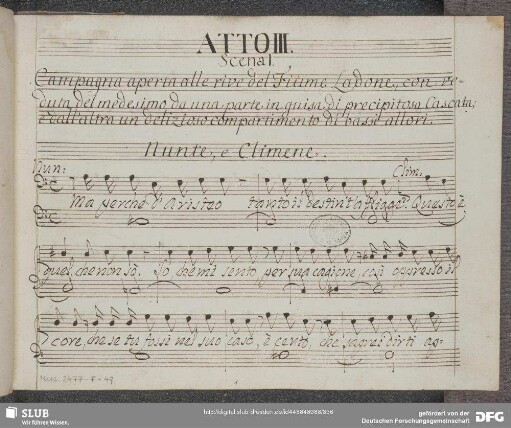 ATTO III.
Scena I.
Campagna aperta alle rive del Fiume Ladone, con ve-
duta del medesimo da una parte in guisa di precipitosa Cascata;
e dall'altra un delizioso compartimento di bassi allori.
Nunte, e Climene.
Nun: Clim.
Ma perche l'Aristeo tanto il destin t'affigge? Questo è
quel che non sò. So che mi sento per sua cagione così oppresso il
core, che se tu fossi nel suo caso, è certo, che saprei dirti ap-
Mus. 2477-F-49
SLUB
Wir führen Wissen.
gefördert von der
Deutschen Forschungsgemeinschaft
DFG